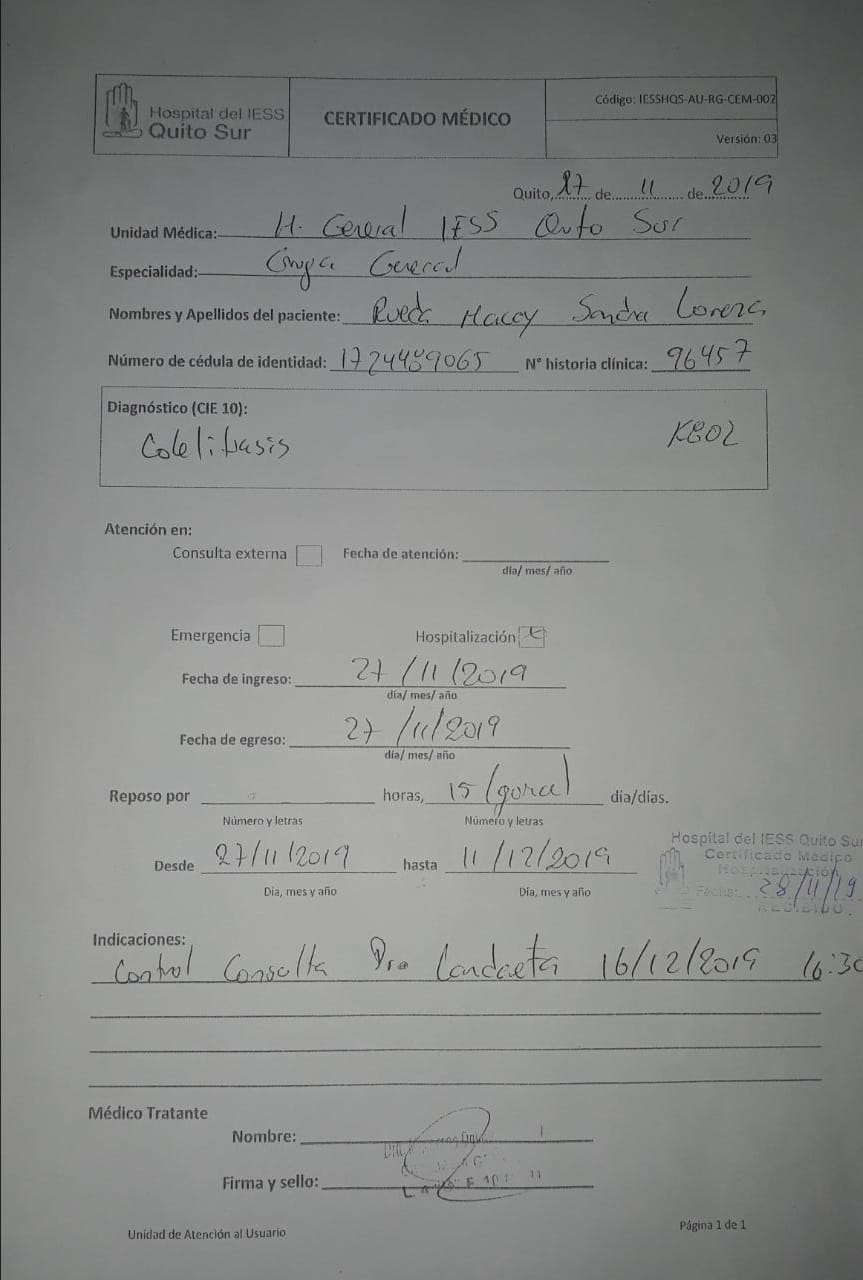 Hospital del IESS
Quito Sur
CERTIFICADO MÉDICO
Código: IESSHQS-AU-RG-CEM-002
Versión: 03
Quito, 27 de 11 de 2019
Unidad Médica: H. General IESS Quito Sur
Especialidad: Cirugia General
Nombres y Apellidos del paciente: Rueda Sandra Lorena
Número de cédula de identidad: 1724489065 N° historia clínica: 96457
Diagnóstico (CIE 10):
Colelitiasis K802
Atención en:
Consulta externa Fecha de atención:
día/ mes/ año
Emergencia Hospitalización
Fecha de ingreso: 27/11/2019
día/ mes/ año
Fecha de egreso: 27/11/2019
día/ mes/ año
Reposo por horas, 15 día/días.
Número y letras Número y letras
Desde 27/11/2019 hasta 11/12/2019
Dia, mes y año Día, mes y año
Hospital del IESS Quito Sur
Certificado Medico
Hospitalización
Fecha: 28/11/19
RECIBIDO
Indicaciones:
Control Consulta Dra Landaeta 16/12/2019 16:30
Médico Tratante
Nombre:
Firma y sello:
Unidad de Atención al Usuario
Página 1 de 1